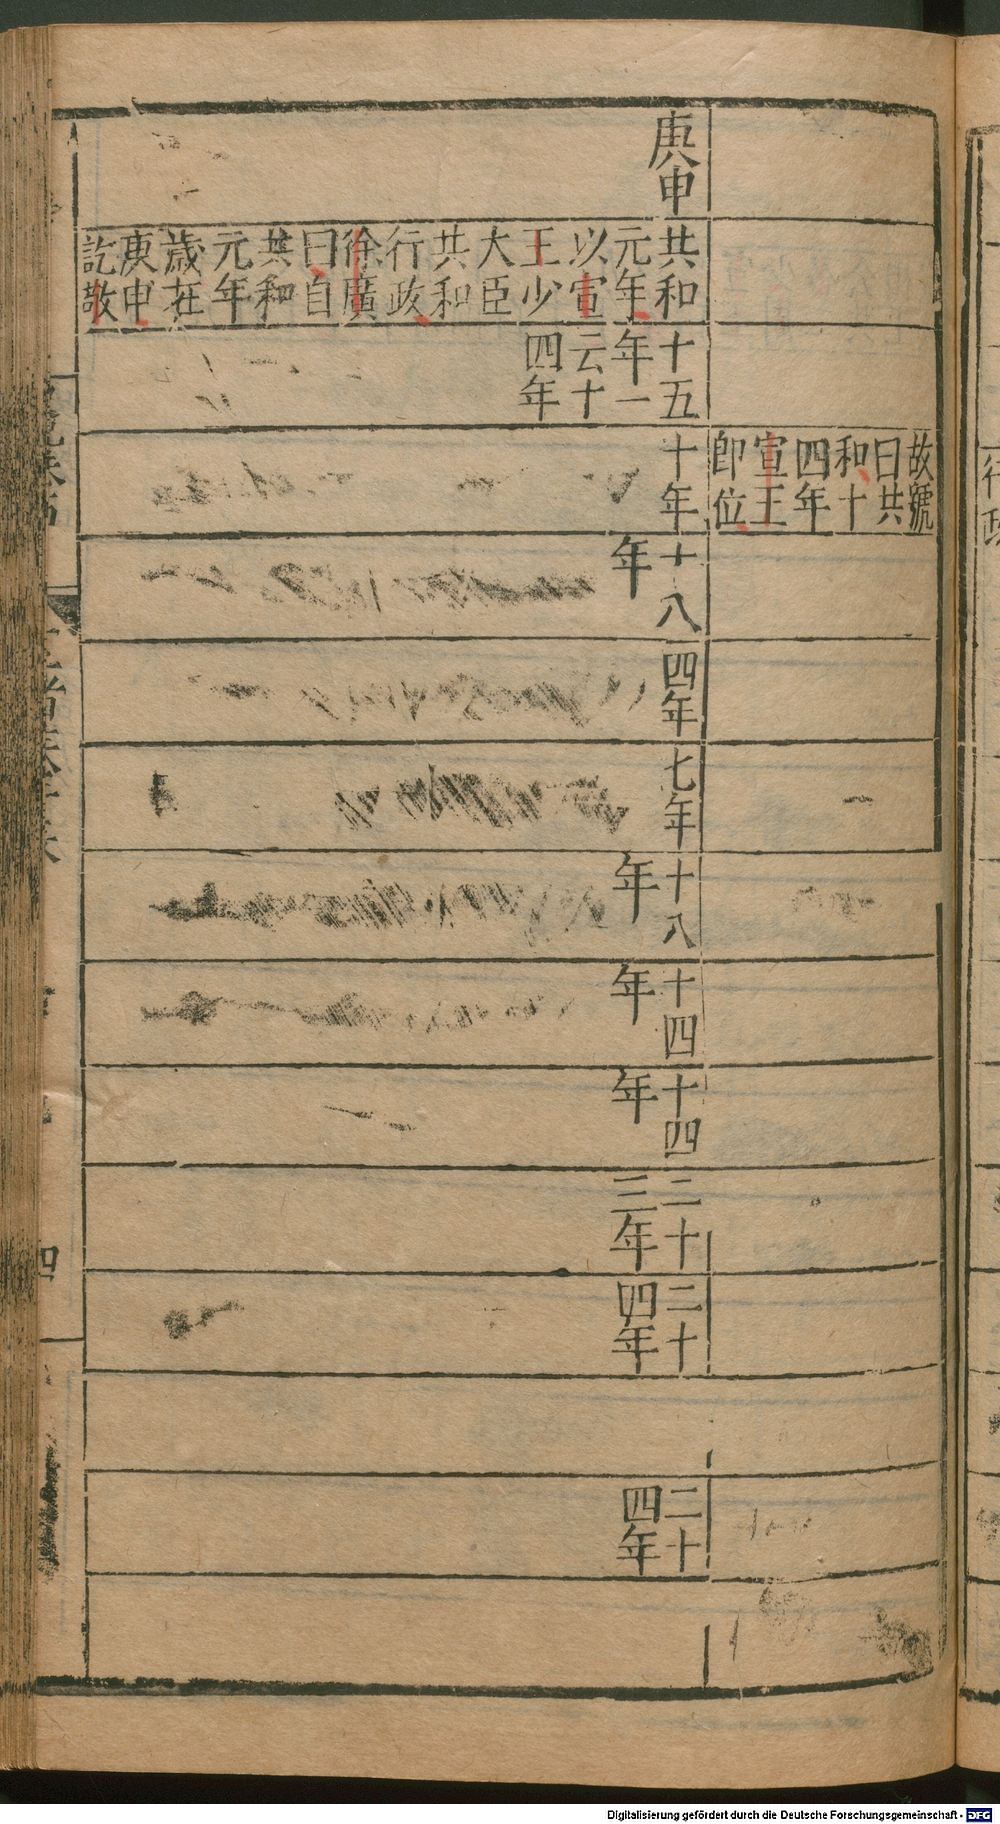 故號
曰共
和十
四年
宣王
即位
庚申
共和
元年
以宣
王少
大臣
共和
行政
徐廣
曰自
共和
元年
歲在
庚申
訖敬
十五
年一
云十
四年
十年
十八
年
四年
七年
十八
年
十四
年
十四
年
二十
三年
二十
四年
二十
四年
四
行政
Digitalisierung gefördert durch die Deutsche Forschungsgemeinschaft - DFG